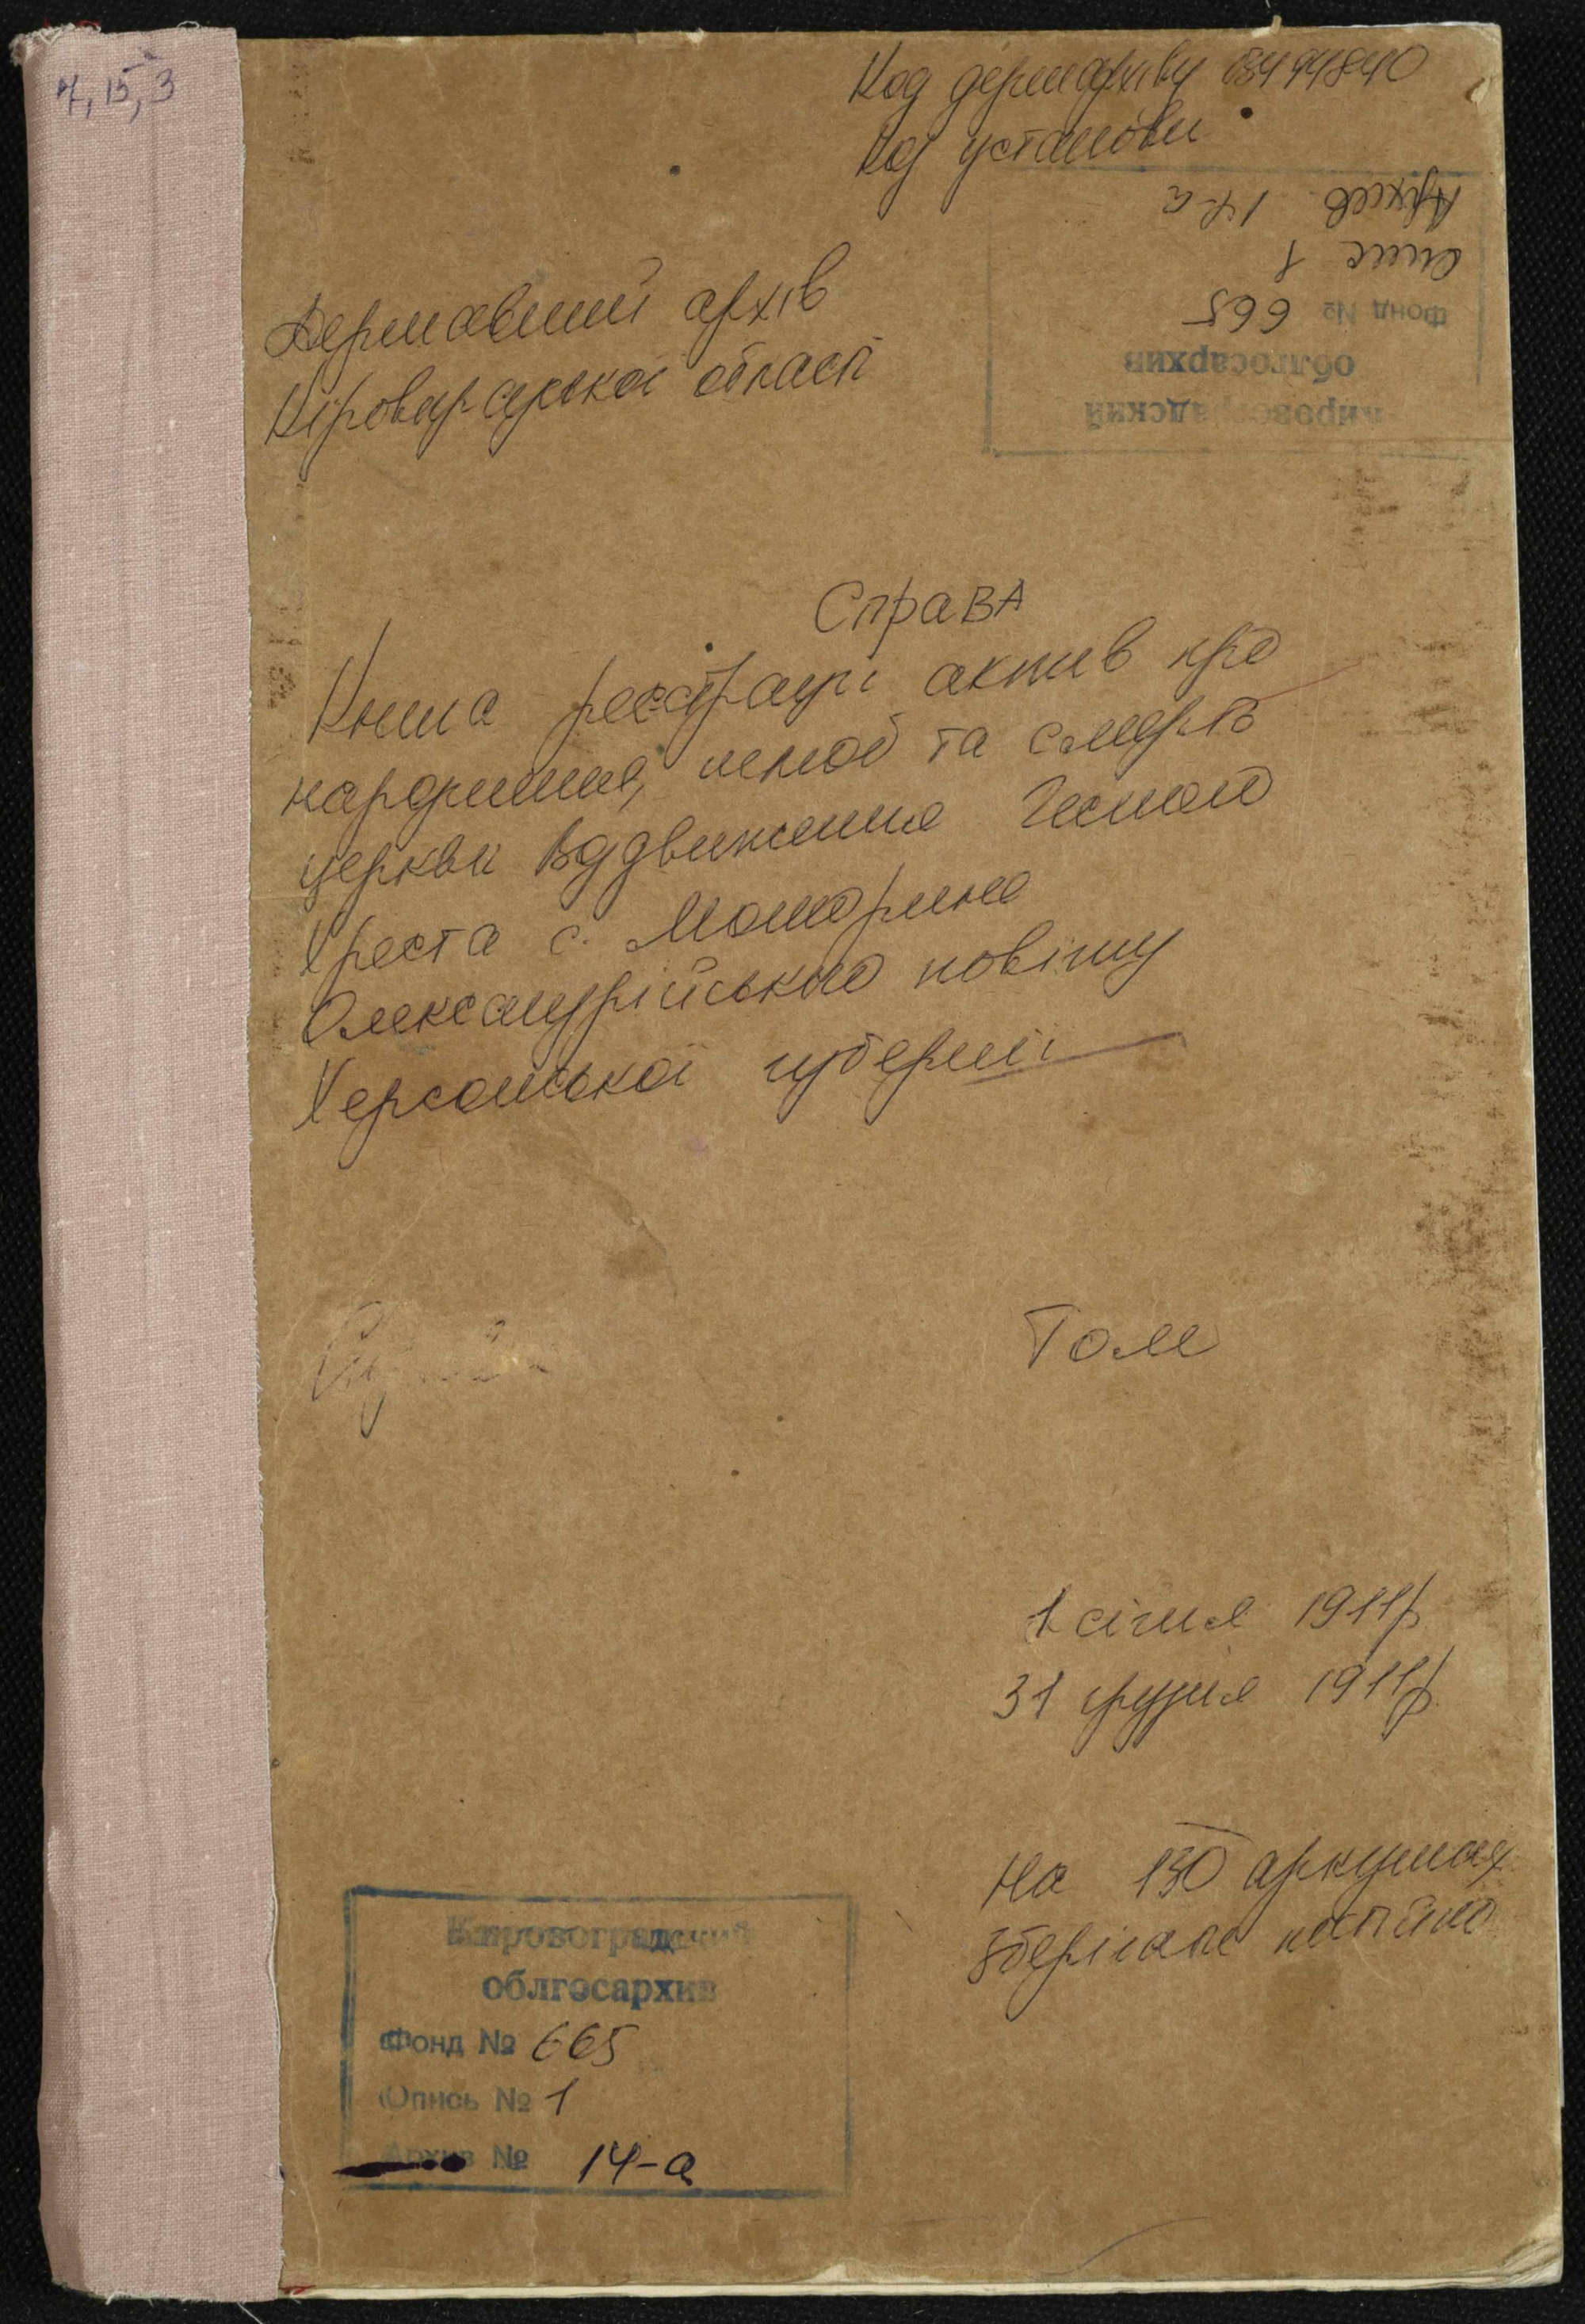 7, 15, 3
Код держархіву 03494840
Код установи
Архив 14-а
опис 1
Фонд № 665
облгосархив
Кировоградский
Державний архів
Кіровоградської області
Справа
Книга реєстрації актив про
народження, шлюб та смерть
церкви Воздвиження Чесного
Хреста с. Мошорине
Олександрійського повіту
Херсонської губернії
Том
1 січня 1911р
31 грудня 1911р
На 130 аркушах
Зберігати постійно
Кировоградский
облгосархив
Фонд № 665
Опись № 1
Архив № 14-а